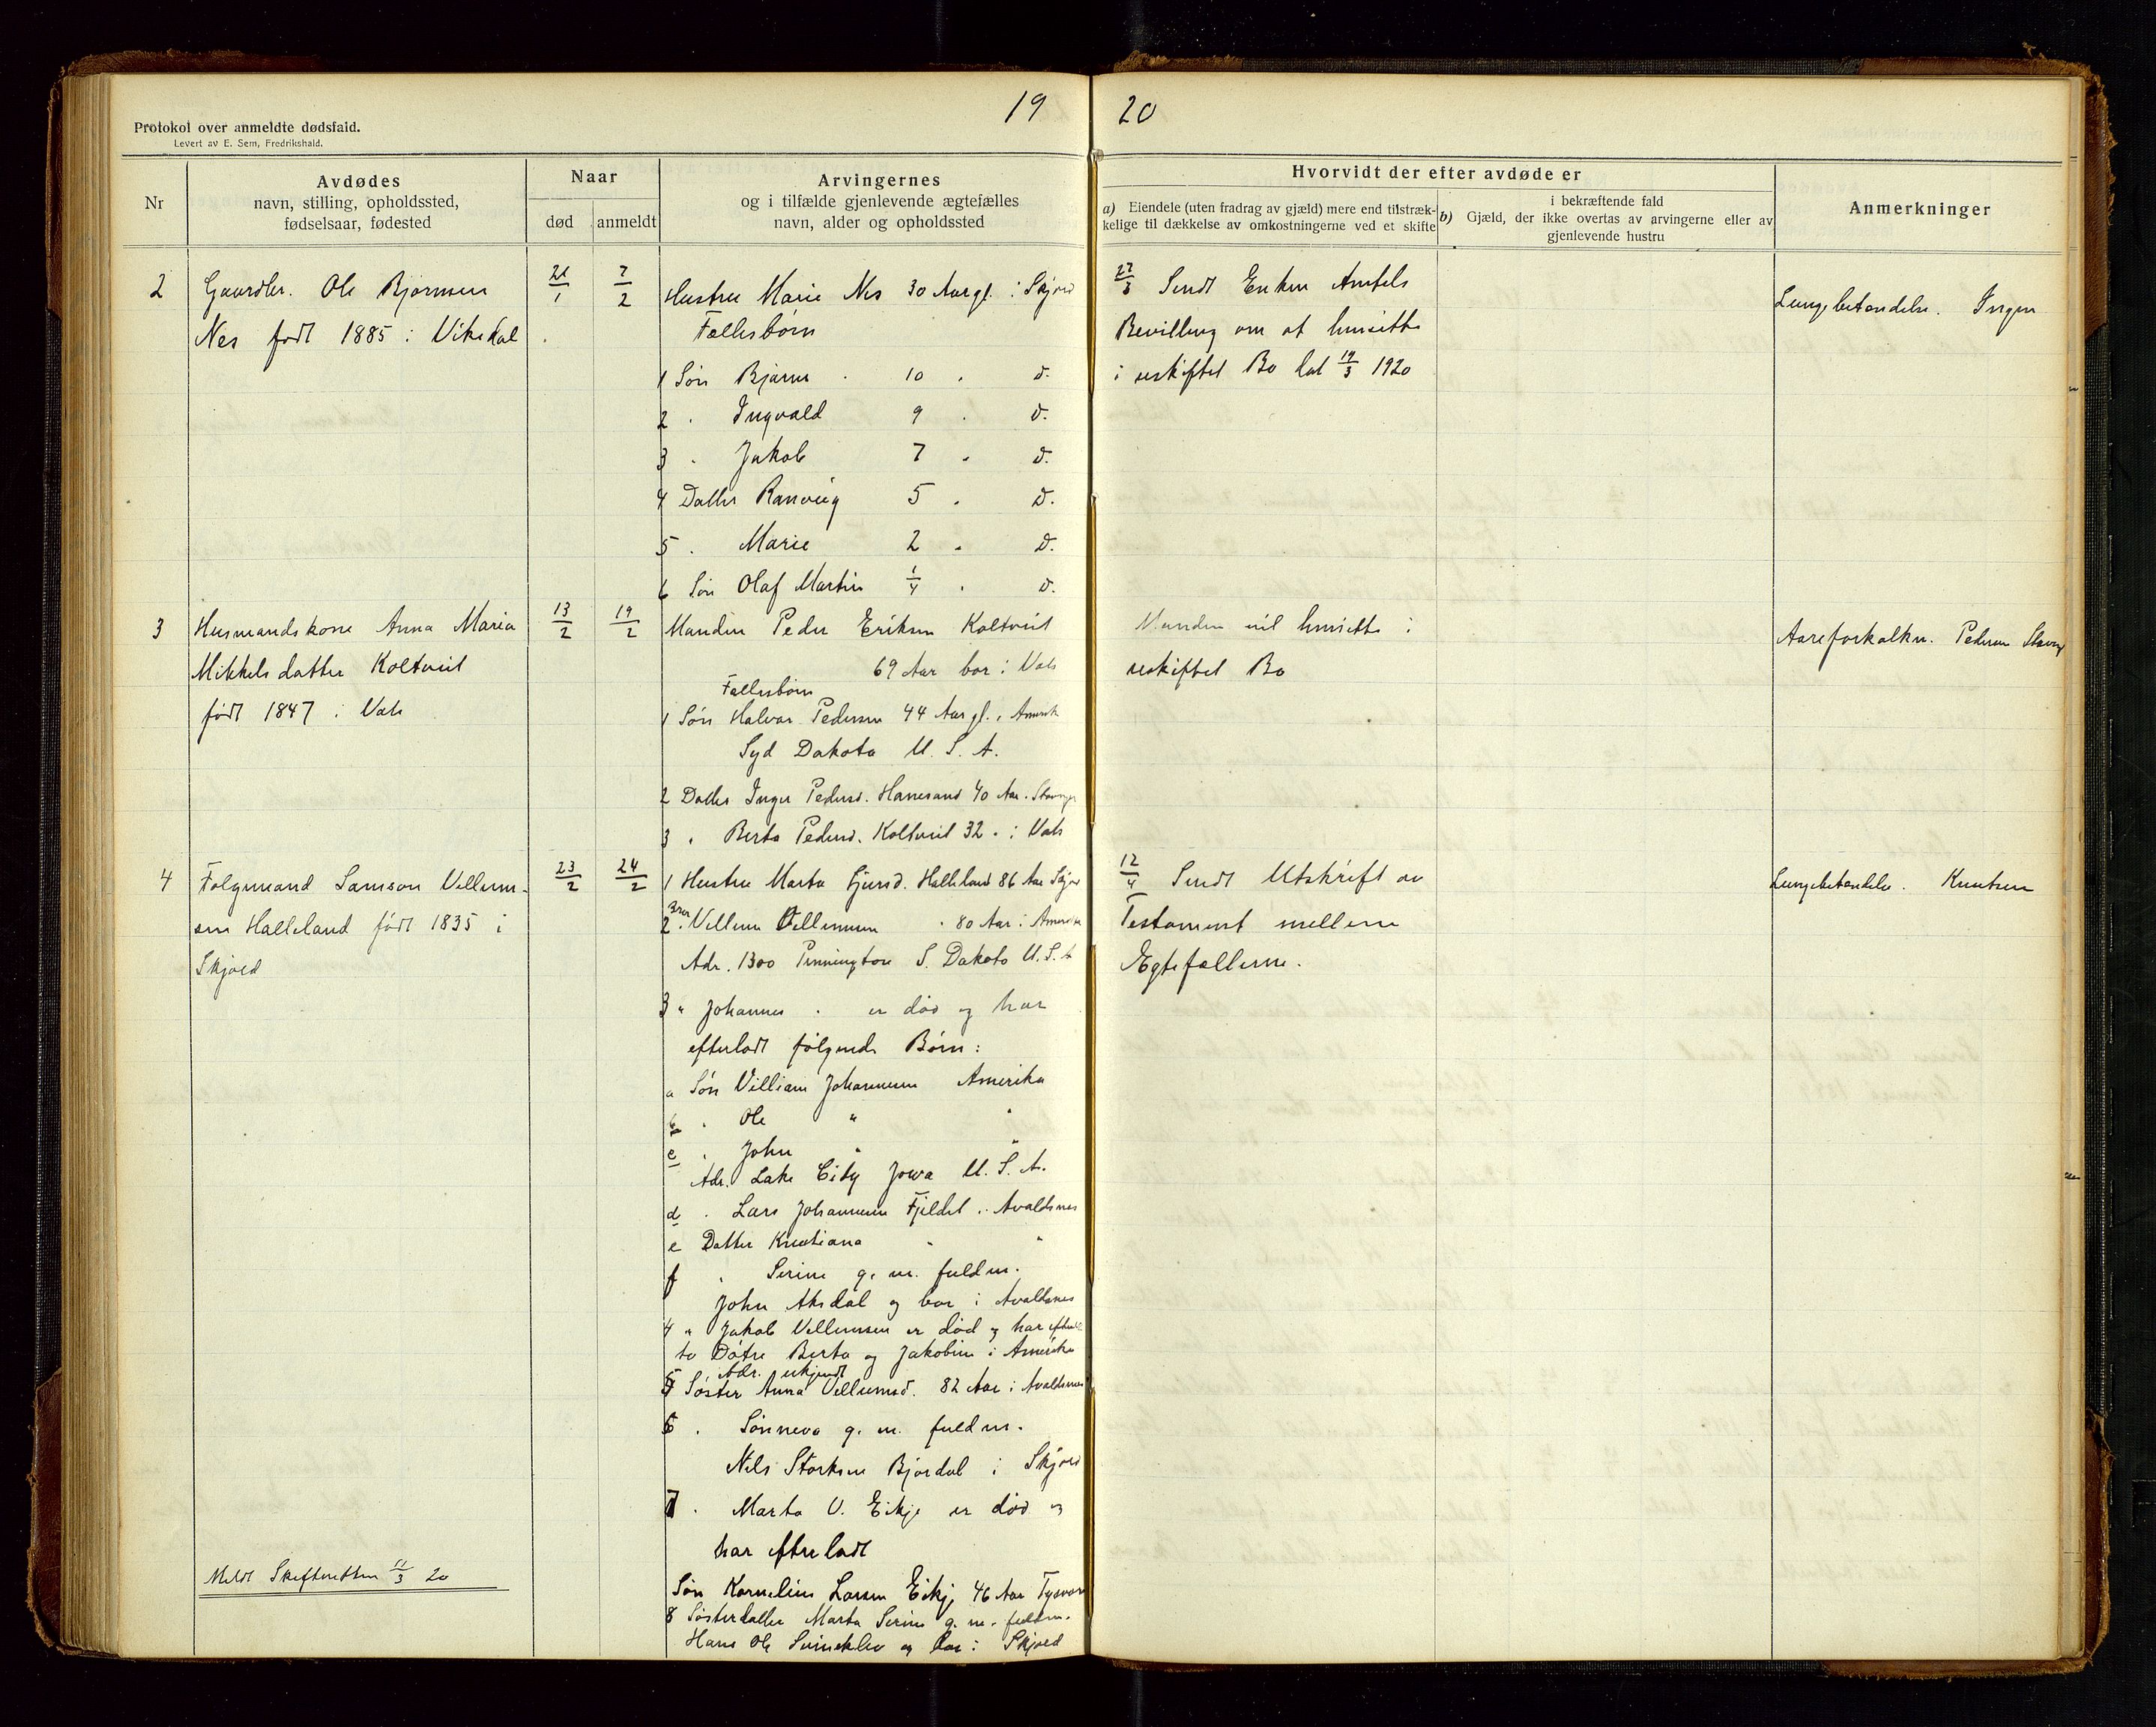 19
20
Protokol over anmeldte dødsfald.
Levert av E. Sem, Fredrikshald.
Nr
Avdødes
navn, stilling, opholdssted,
fødselsaar, fødested
Naar
død
anmeldt
Arvingernes
og i tilfælde gjenlevende ægtefælles
navn, alder og opholdssted
Hvorvidt der efter avdøde er
a) Eiendele (uten fradrag av gjæld) mere end tilstræk-
kelige til dækkelse av omkostningerne ved et skifte
i bekræftende fald
b) Gjæld, der ikke overtas av arvingerne eller av
gjenlevende hustru
Anmerkninger
2 Gaardbr. Ole Bjørnsen
Nes født 1885 i Vikedal
21/1
7/2
Hustru Marie Nes 30 Aar gl. i Skjold
Fællesbørn
1 Søn Bjarne 10 " d.
2 " Ingvald 9 " d.
3 " Jakob 7 " d.
4 Datter Ranveig 5 " d.
5 " Marie 2 " d.
6 Søn Olaf Martin 1/4 " d.
27/3 Sendt Enken Amtels
Bevilling om at hensitte
i uskiftet Bo dat 19/3 1920
Lungebetændelse. Ingen
3 Husmandskone Anna Maria
Mikkelsdatter Koltveit
født 1847 i Vats
13/2
19/2
Manden Peder Eriksen Koltveit
69 Aar bor i Vats
Fællesbørn
1 Søn Halvar Pedersen 44 Aar gl. i Amerik
Syd Dakota U. S. A.
2 Datter Inger Pedersd. Hanesand 40 Aar. Stavanger
3 " Berta Pedersd. Koltveit 32 " i Vats
Manden vil hensitte i
uskiftet Bo
Aareforkalkn. Pedersen
4 Følgemand Samson Vellum-
sen Halleland født 1835 i
Skjold
23/2
24/2
1 Hustru Marta Halleland 86 Aar Skjold
2 Bror Vellum Vellumsen " 80 Aar i Amerika
Adr. 1300 Pennington S. Dakota U. S. A
3 " Johannes " er død og har
efterladt følgende Børn:
a Søn Villiam Johannesen Amerika
b " Ole " "
c " John " "
Adr. Lake City Jowa U. S. A.
d " Lars Johannesen Fjeldet i Avaldsnes
e Datter Kristiana " "
f " Serine g. m. fuldm.
John Aksdal og bor i Avaldsnes
4 " Jakob Vellumsen er død og har efterl
to Døtre Berta og Jakobine i Amerika
Adr. ukjendt
5 Søster Anna Vellumsd. 82 Aar i Avaldsnes
6 " Sønneva g. m. fuldm.
Nils Storksen Bjordal i Skjold
7 " Marta V. Eikje er død og
har efterladt
Søn Kornelius Larsen Eikje 46 Aar Tysvær
8 Søsterdatter Marta Serine g. m. fuldm.
Hans Ole og bor i Skjold
12/4 Sendt Utskrift av
Testament mellem
Egtefællerne.
Lungebetændelse. Knutsen
Meldt Skifteretten 11/3 20